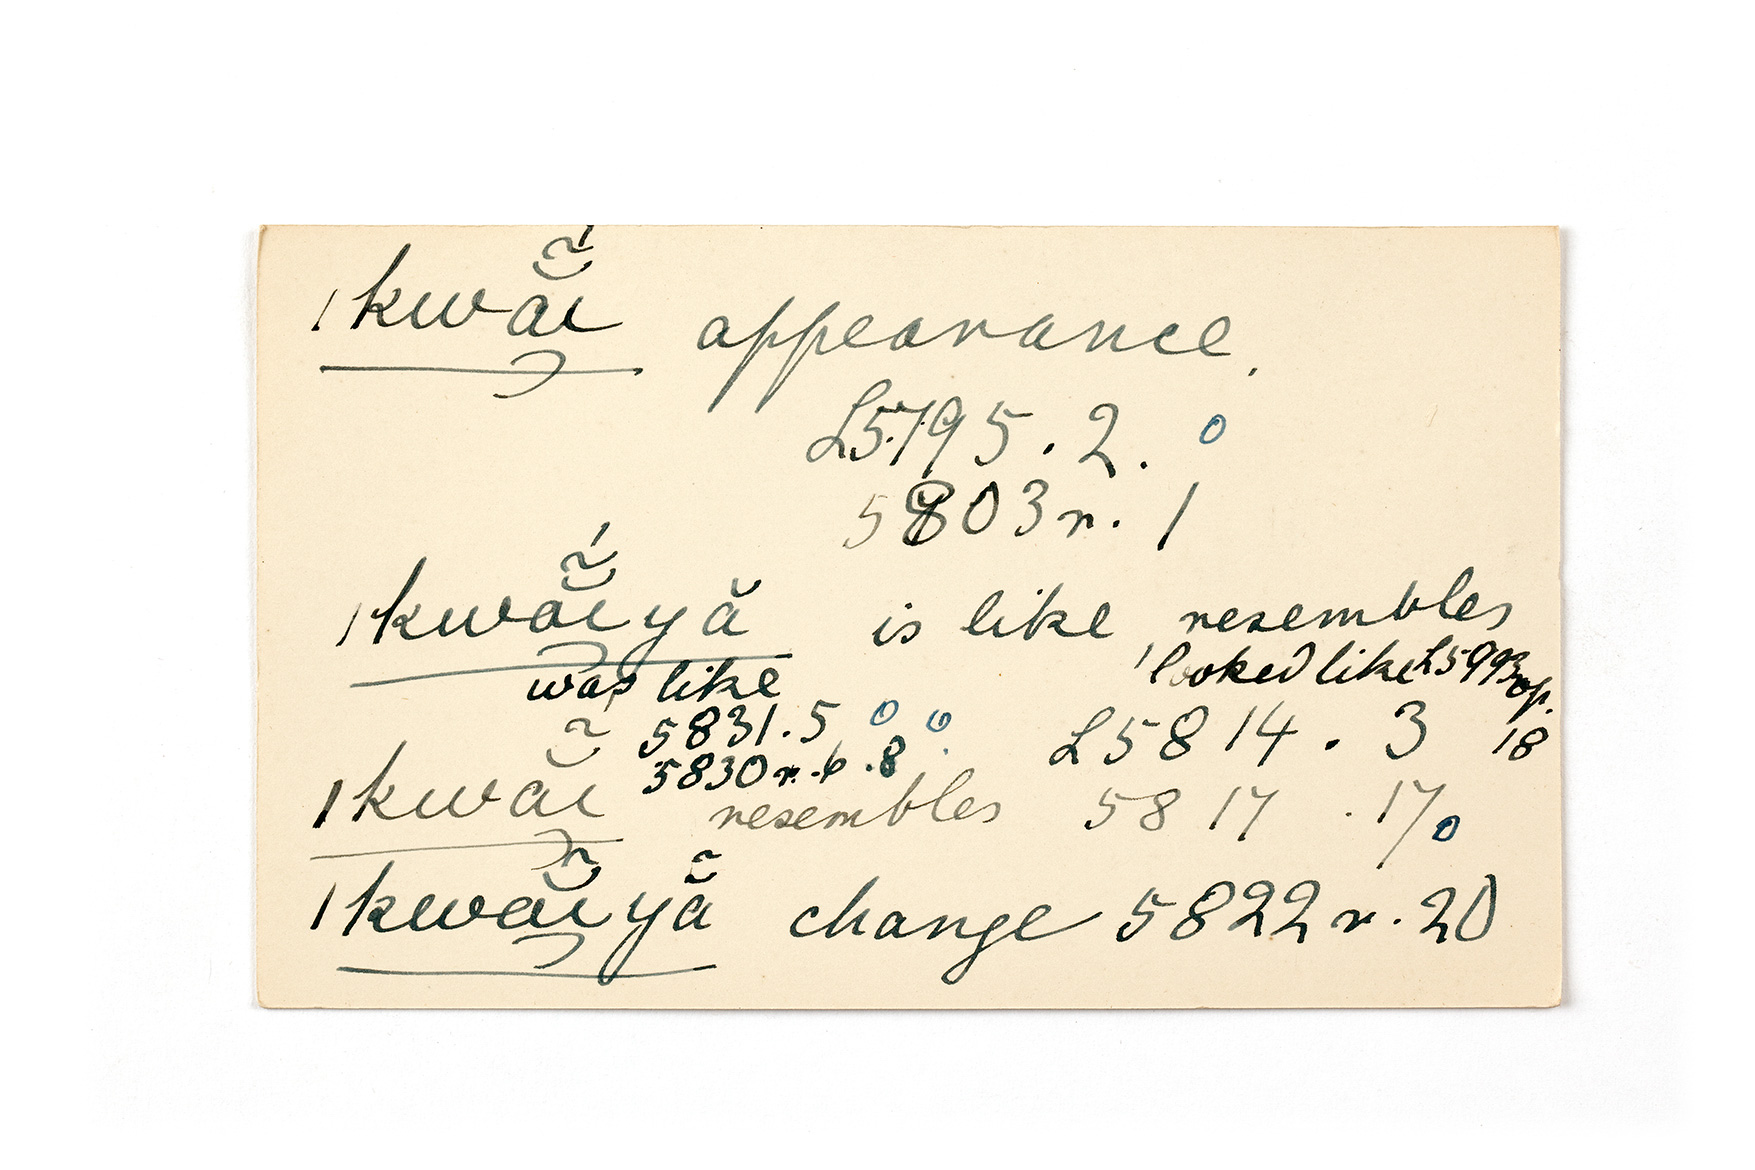 ǀkwā̆̃́ı appearance.
L5795.2. 0
5803 r. 1
ǀkwā̆̃́ı yă is like resembles
was like 'looked like L5993 op. 18
5831.5 0 0 L5814.3
5830 r. 6.8
ǀkwā̆̃ı resembles 5817.17 0
ǀkwā̆̃ı yẵ change 5822 r. 20